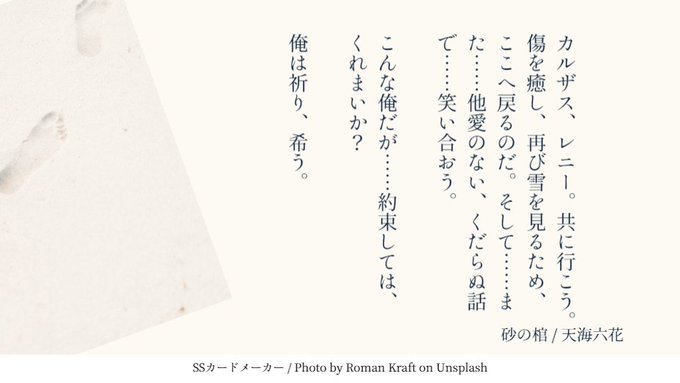 カルザス、レニー。共に行こう。
傷を癒し、再び雪を見るため、
ここへ戻るのだ。そして……ま
た……他愛のない、くだらぬ話
で……笑い合おう。
こんな俺だが……約束しては、
くれまいか？
俺は祈り、希う。
砂の棺 / 天海六花
SSカードメーカー / Photo by Roman Kraft on Unsplash